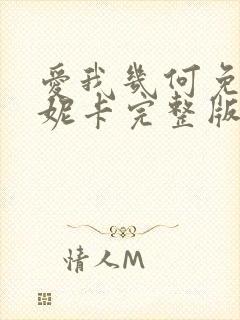 爱我几何免
妮卡完整版
情人M